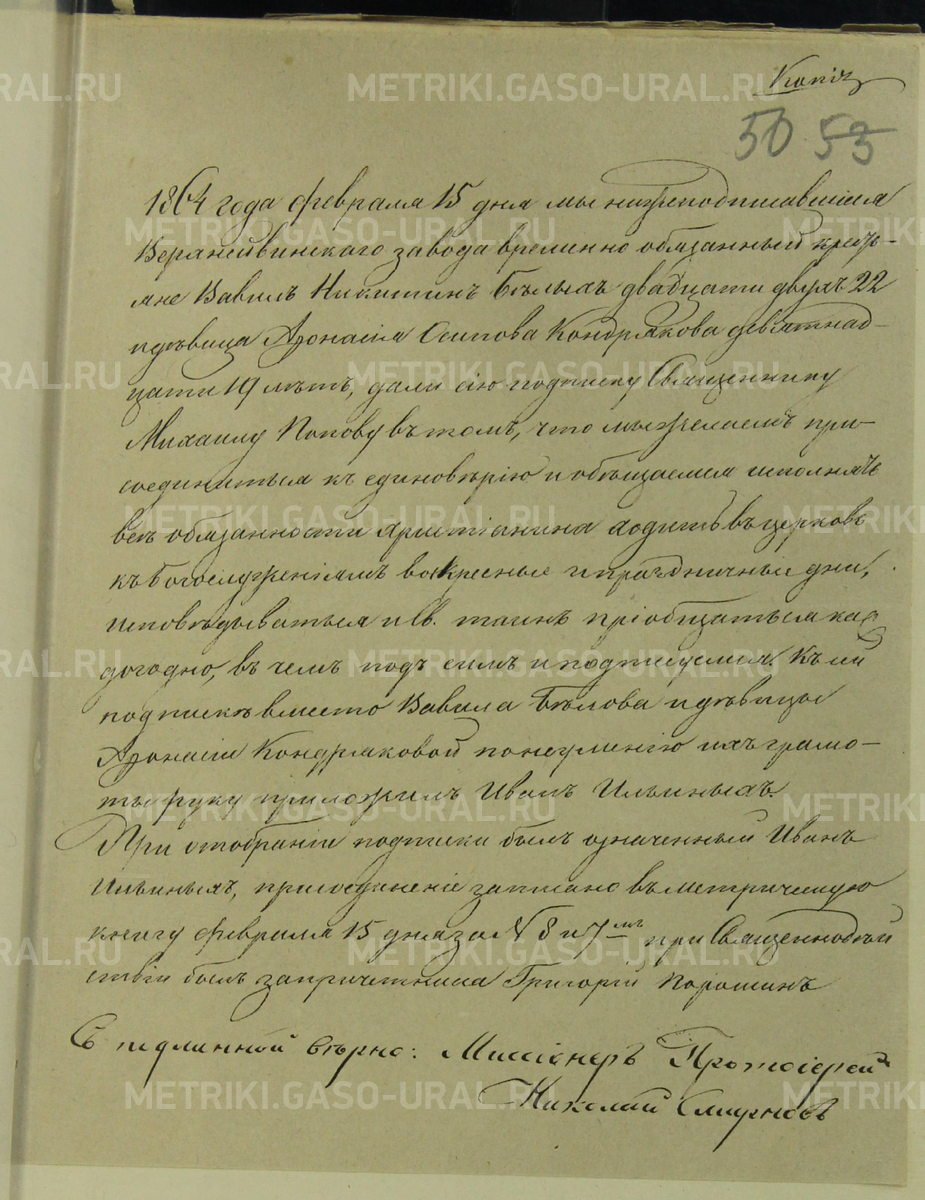 Копія
50 53
1864 года февраля 15 дня мы нижеподписавшіися
Верхнейвинскаго завода временно обязанный крест-
яне Вавилъ Никитинъ Бѣлыхъ двадцати двухъ 22
и дѣвица Афонасія Осипова Кондрякова девятнад-
цати 19 лѣтъ, дали сію подписку Священнику
Михаилу Попову въ томъ, что мы желаемъ при-
соединиться къ единовѣрію и обѣщаемся исполнять
всѣ обязанности христіанина ходить въ церковь
къ Богослуженіямъ воскресные и праздничные дни,
исповѣдываться и Св. таинъ пріобщаться каж
догодно, въ чемъ подъ симъ и подписуемся. Къ сей
подпискѣ вмѣсто Вавила Бѣлова и дѣвицы
Афонасіи Кондряковой по неумѣнію ихъ грамо-
ты руку приложилъ Иванъ Ильиныхъ.
При отобраніи подписки былъ означенный Иванъ
Ильиныхъ, присоединеніе записано въ метрическую
книгу февраля 15 дня за № 8 и 7мъ при Священнодѣй
ствіи былъ за причетника Григорій Порошинъ
Съ подлинной вѣрно: Миссіонеръ Протоіерей
Николай Смирновъ
METRIKI.GASO-URAL.RU